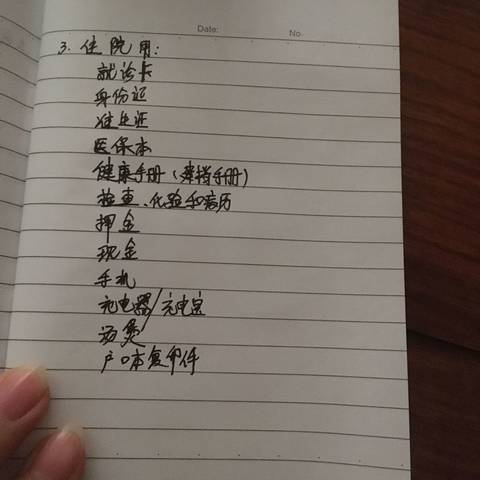 Date:
No.
3. 住院用:
就诊卡
身份证
准生证
医保本
健康手册(建档手册)
检查、化验和病历
押金
现金
手机
充电器/充电宝
户口本复印件